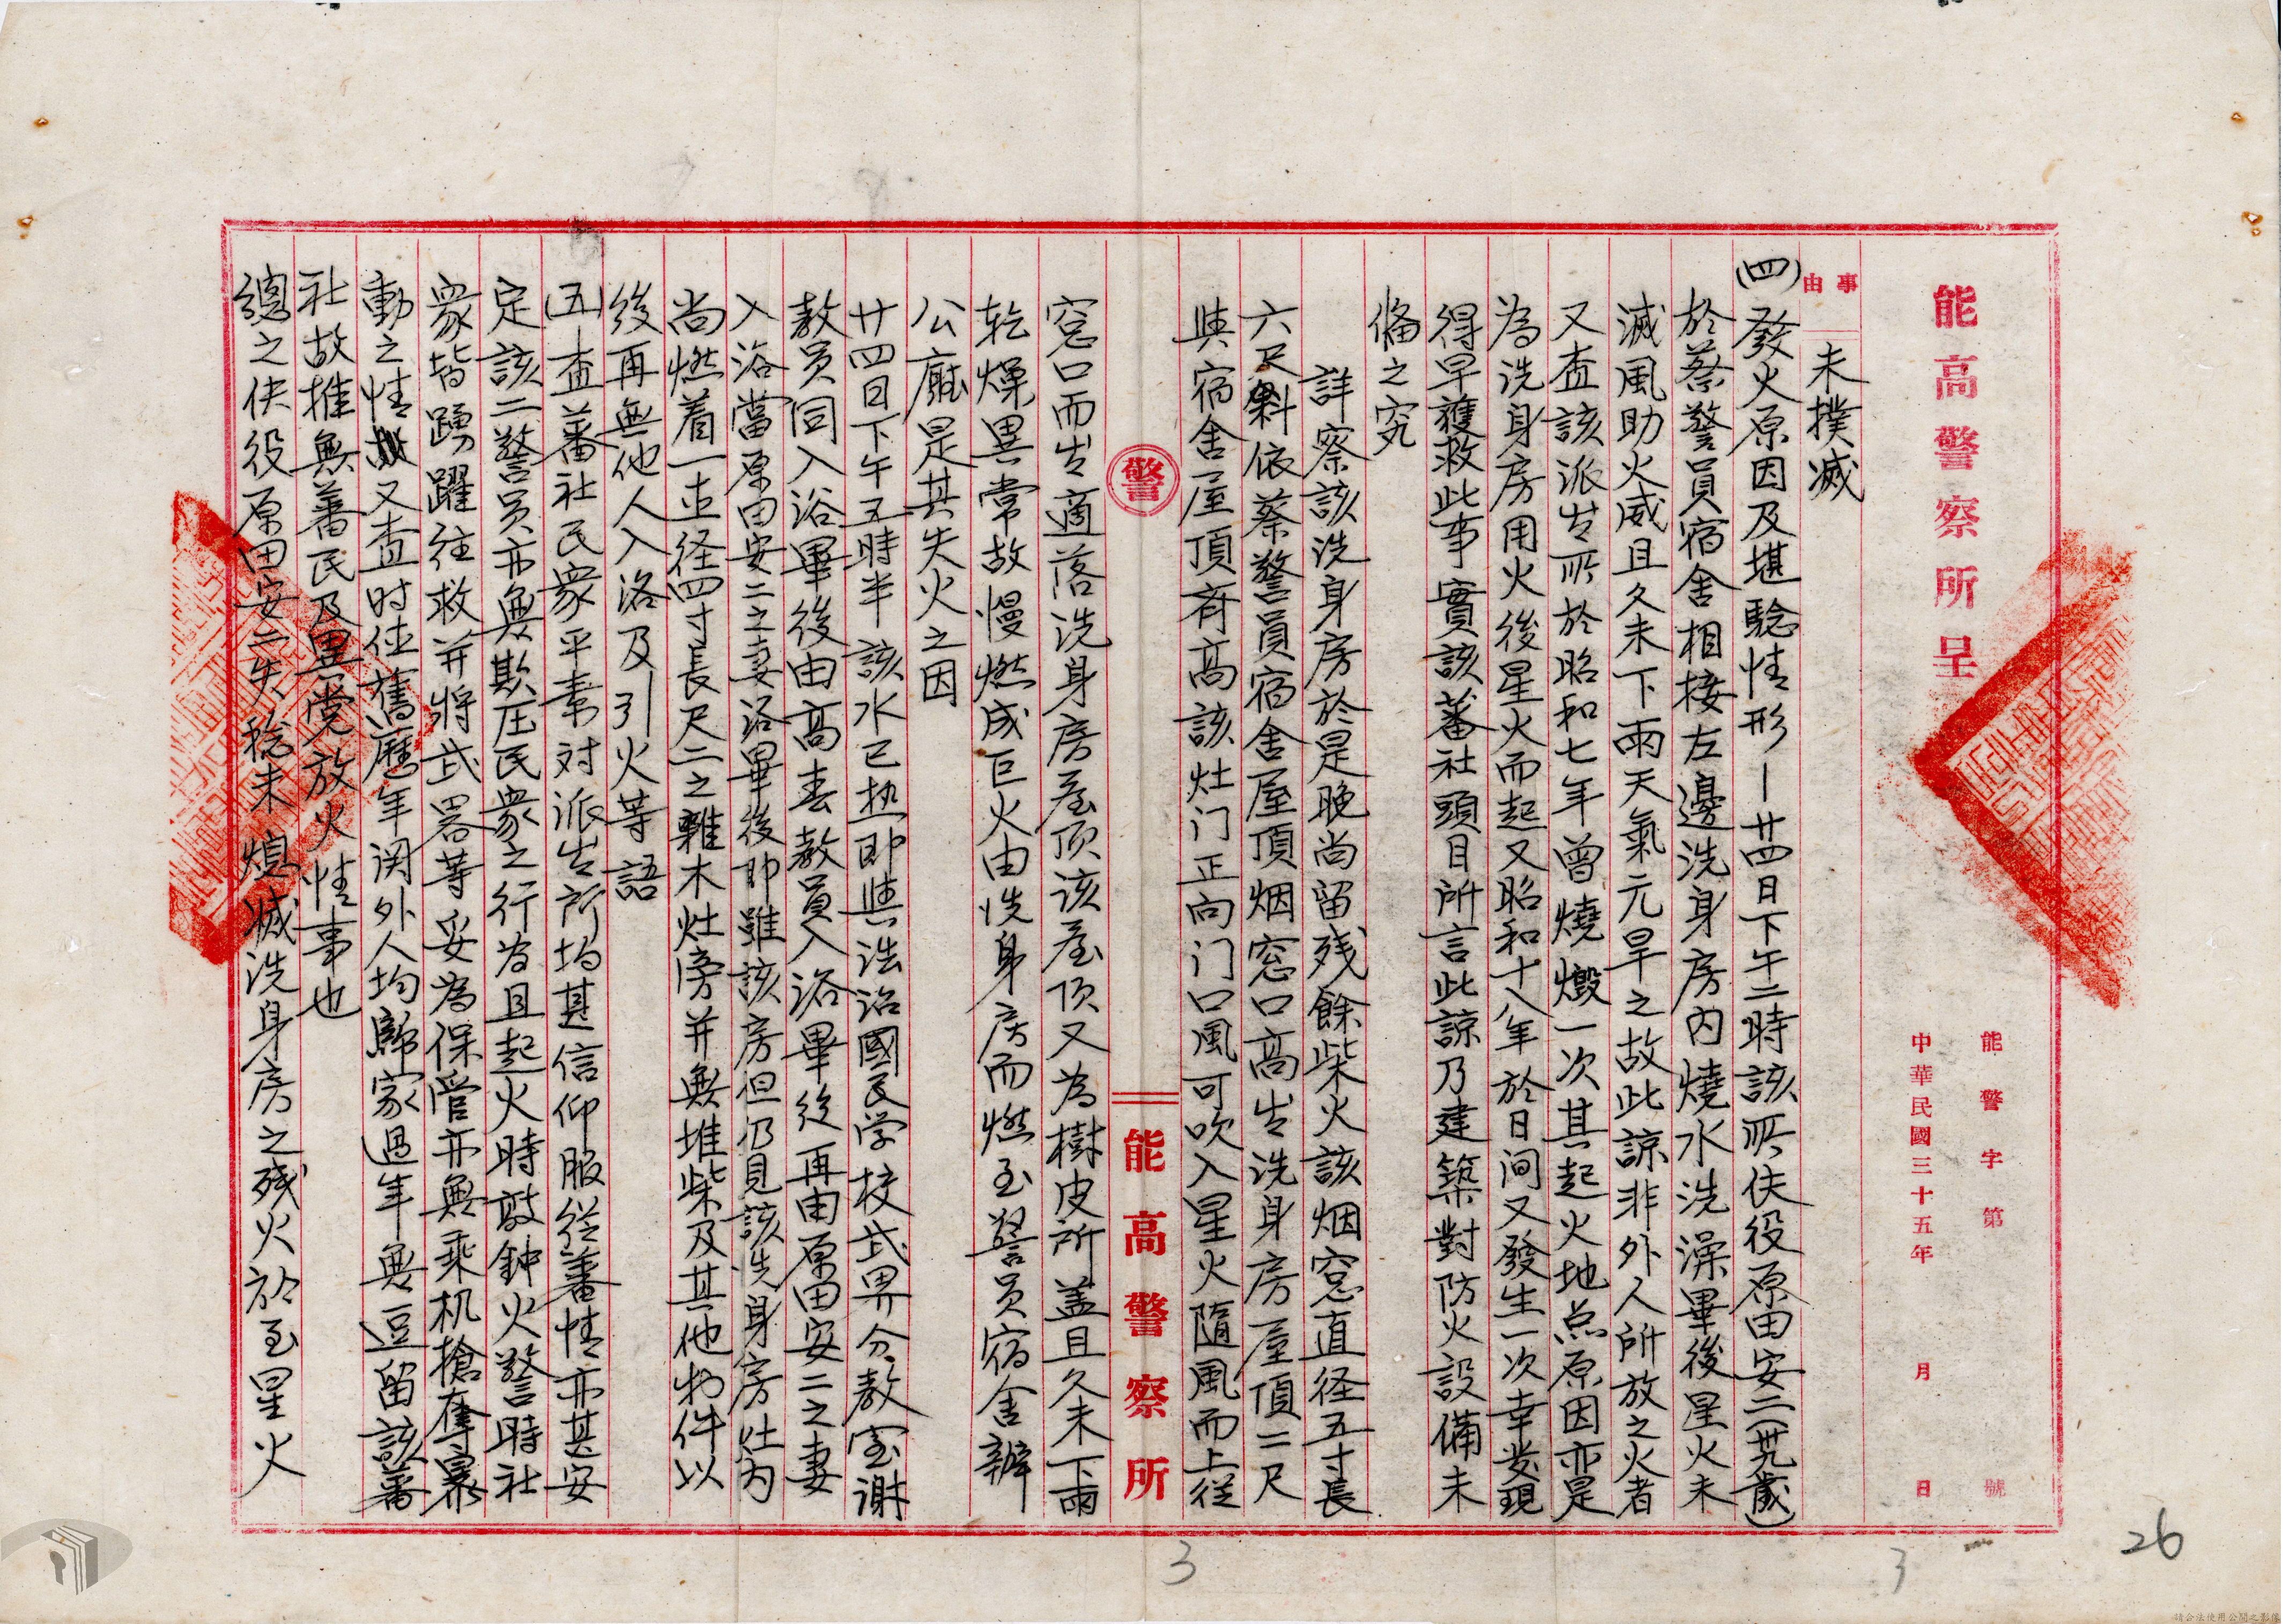 能高警察所呈
能警字第 號
中華民國三十五年 月 日
事由
未撲滅
(四)發火原因及堪驗情形—廿四日下午二時該所伕役原田安二(卅九歲)
於蔡警員宿舍相接左邊洗身房內燒水洗澡畢後星火未
滅風助火威且久未下雨天氣元旱之故此諒非外人所放之火者
又查該派出所於昭和七年曾燒燬一次其起火地点原因亦是
為洗身房用火後星火而起又昭和十八年於日间又發生一次幸發現
得早護救此事實該蕃社頭目所言此諒乃建築對防火設備未
備之究
詳察該洗身房於是晚尚留残餘柴火該烟窓直径五寸長
六尺斜依蔡警員宿舍屋頂烟窓口高出洗身房屋頂二尺
與宿舍屋頂齊高該灶门正向门口風可吹入星火隨風而上從
警
能高警察所
窓口而出適落洗身房屋顶該屋顶又為樹皮所盖且久未下雨
乾燥異常故慢燃成巨火由洗身房而燃至警员宿舍辦
公廳是其失火之因
廿四日下午五時半該水已热即與浩洺國民学校武界分教室谢
教员同入浴畢後由高春教員入浴畢後再由原田安二之妻
入浴當原田安二之妻浴畢後即離該房但仍見該洗身房灶内
尚燃着一直径四寸長尺二之雜木灶傍并無堆柴及其他物件以
後再無他人入洛及引火等語
(五)查蕃社民衆平素对派出所均甚信仰服從蕃情亦甚安
定該二警员亦無欺压民衆之行为且起火時敲鈡火警時社
衆皆踴躍往救并將武器等妥為保管亦無乘机搶奪暴
動之情故又查时值舊歷年関外人均歸家過年無逗留該蕃
社故推無蕃民及異党放火情事也
總之伕役原田安二失稔未熄滅洗身房之残火於至星火
3
3
26
請合法使用公開之影像